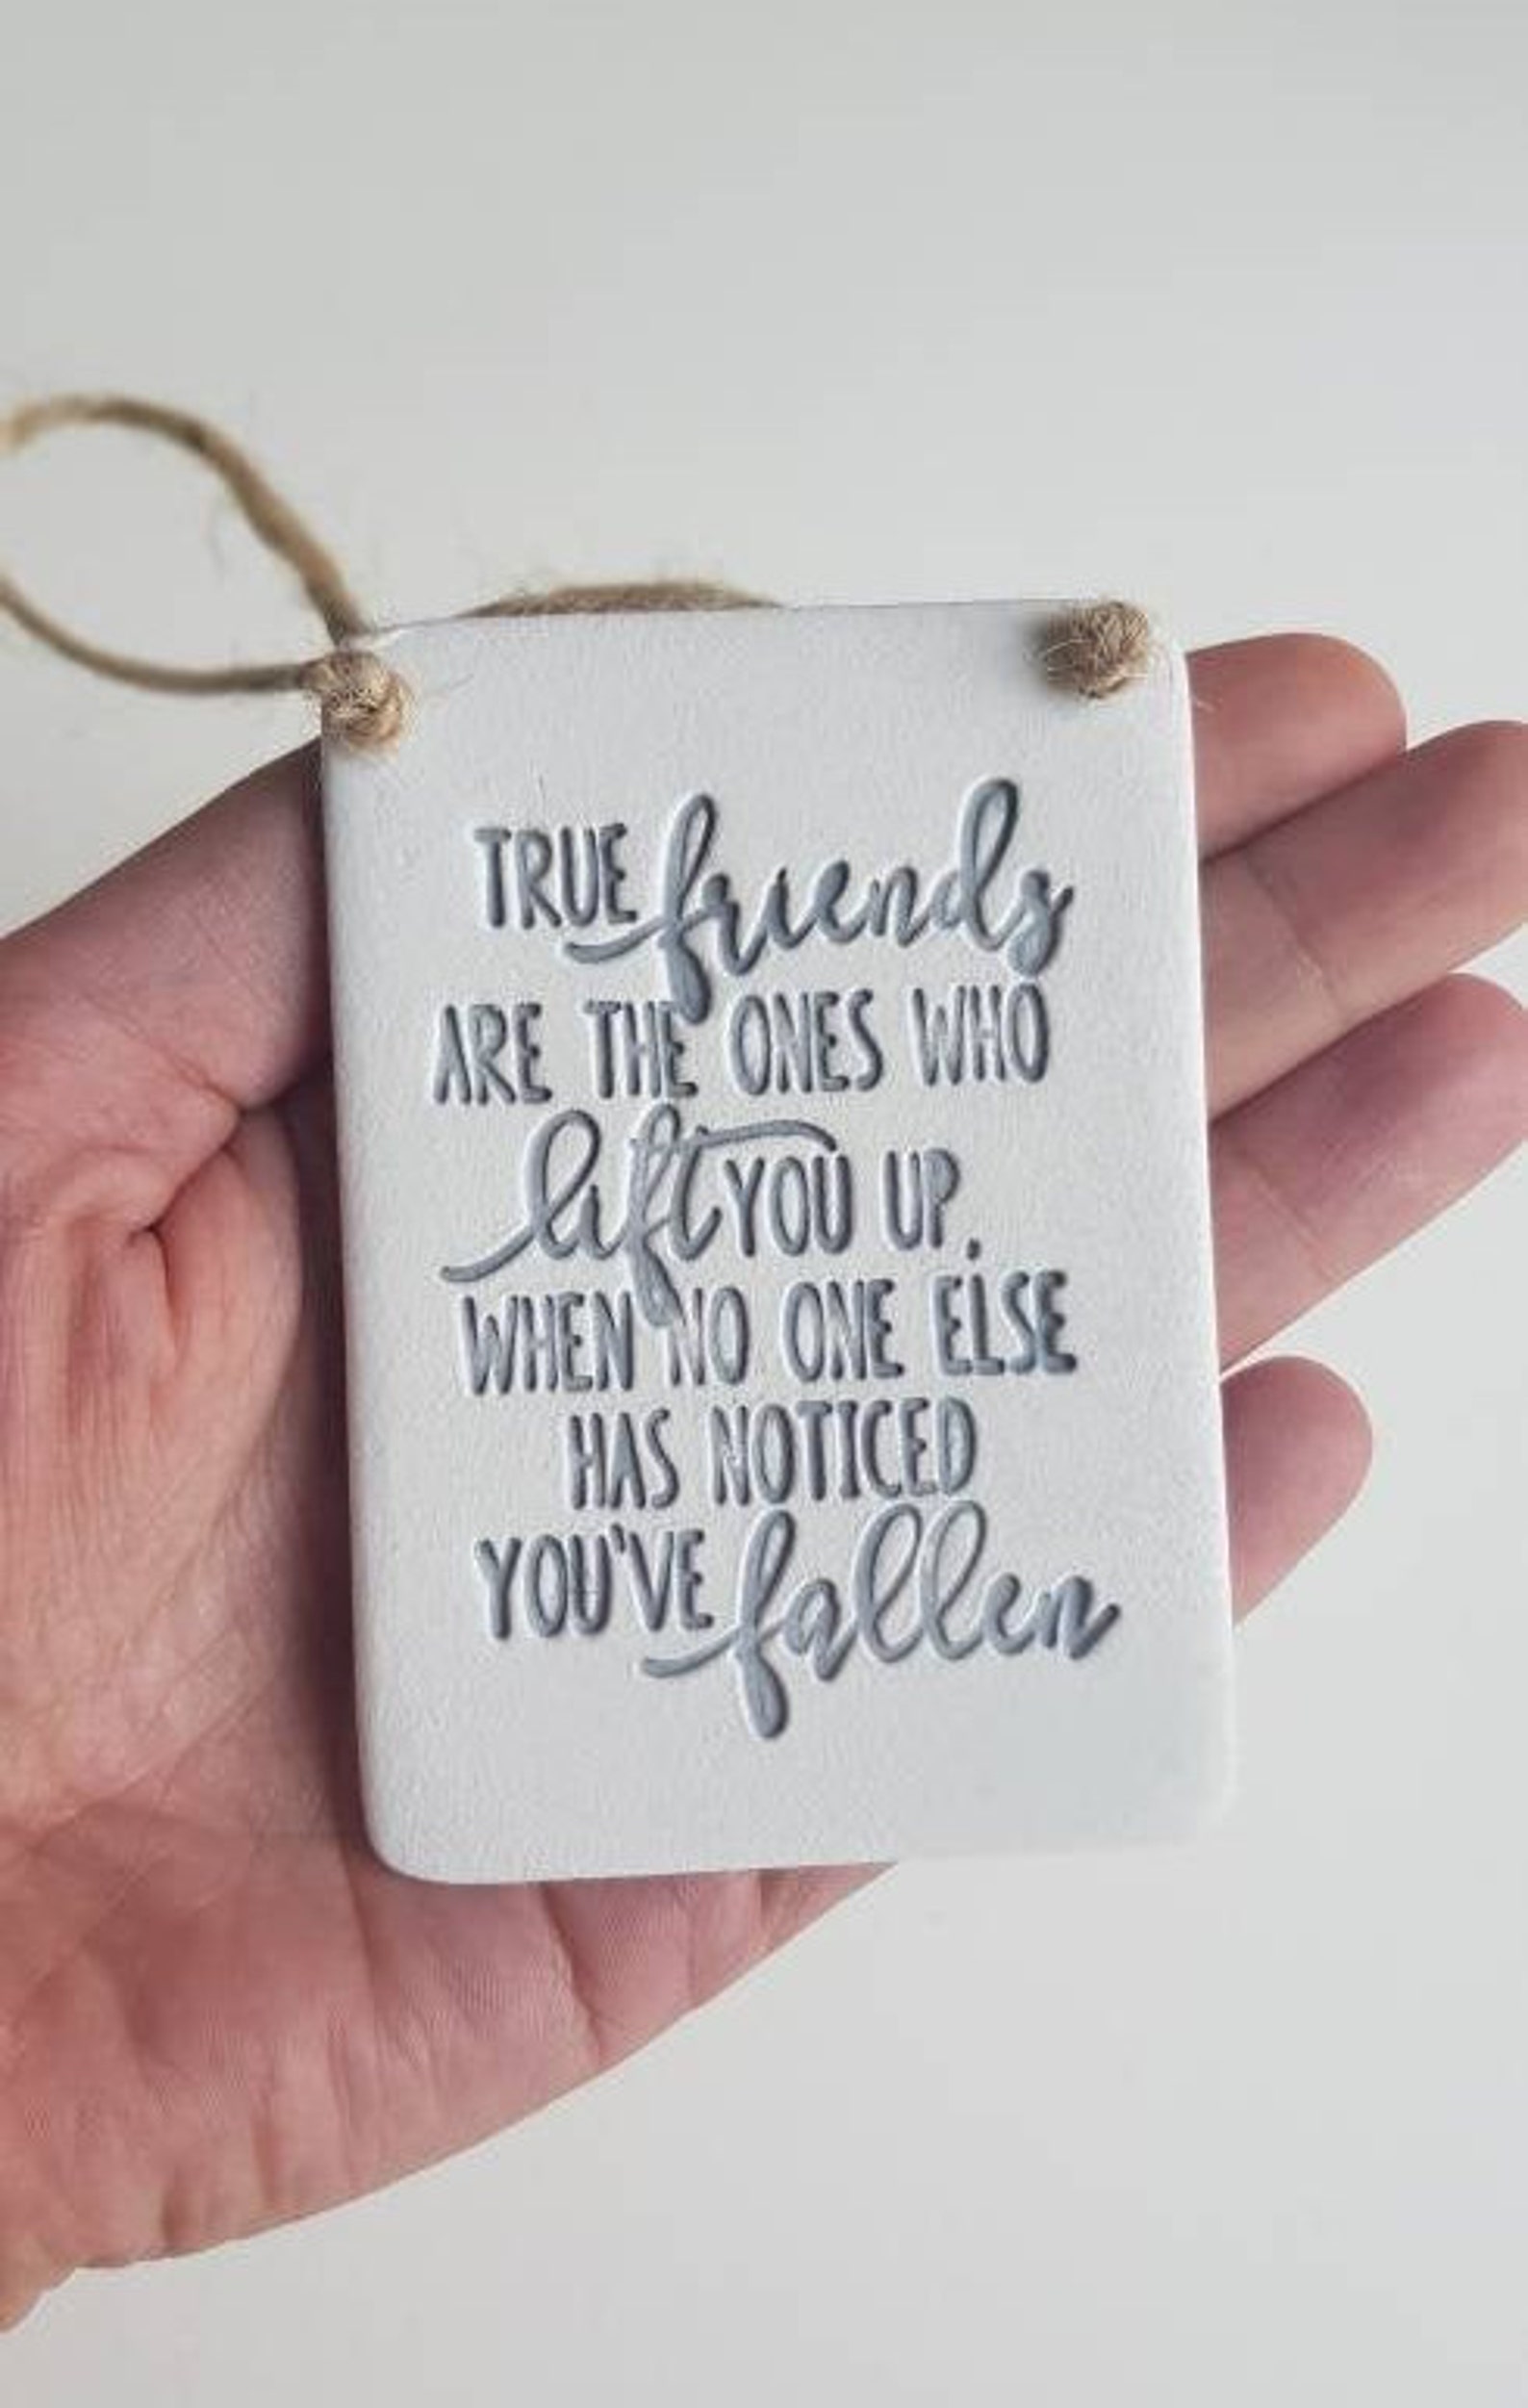 TRUE friends
ARE THE ONES WHO
lift YOU UP.
WHEN NO ONE ELSE
HAS NOTICED
YOU'VE fallen